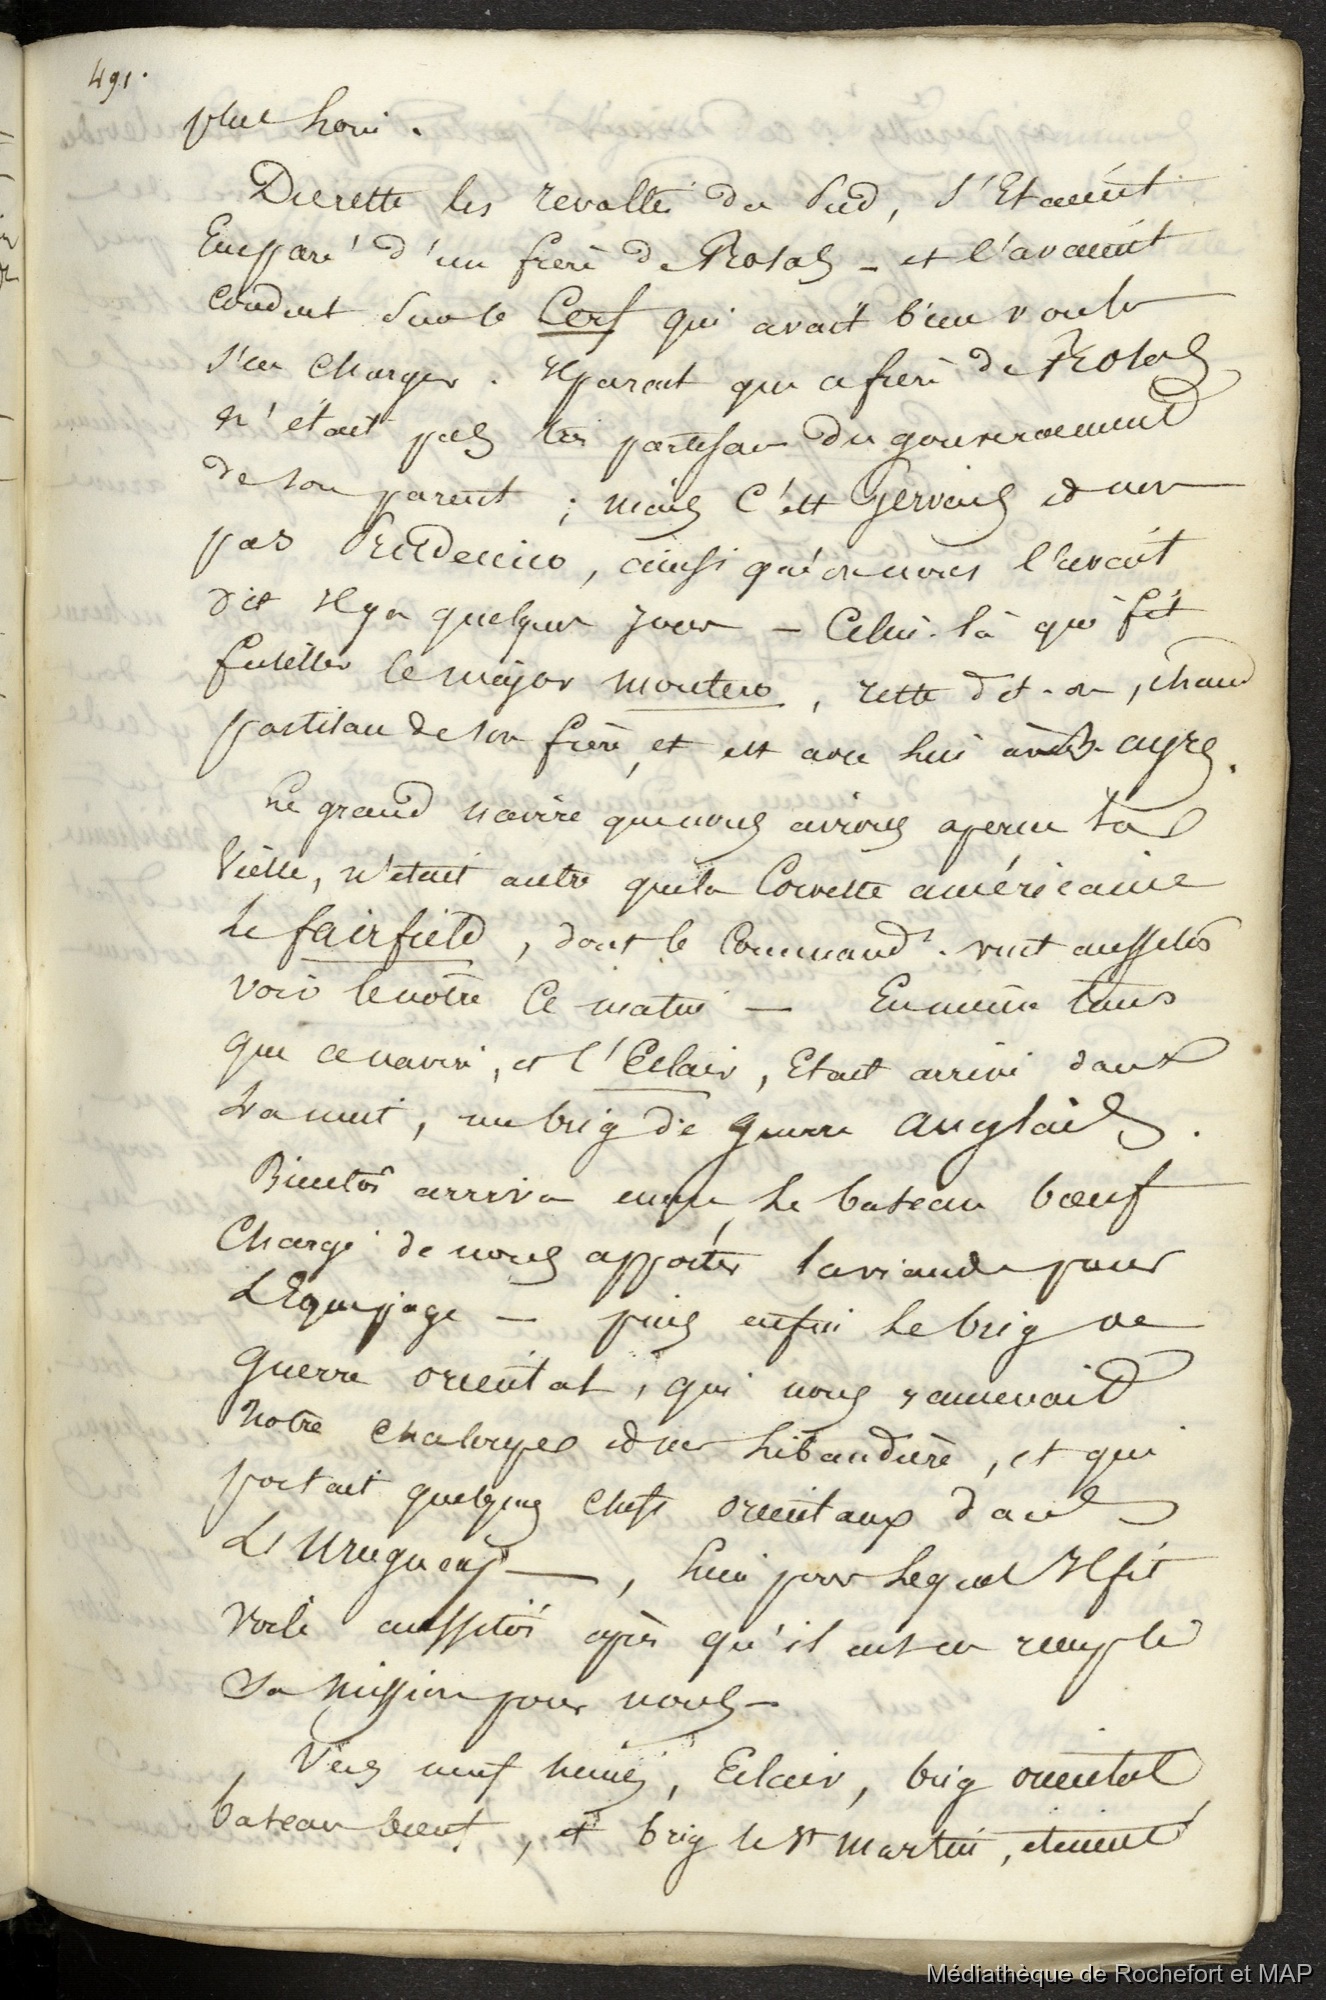 491.
plus haut.
Du reste les revoltés du Sud, s'Etaient
Emparé d'un frère de Rosas - et l'avaient
Conduit sur le Cerf qui avait bien voulu
s'en charger. Il parait que ce frère de Rosas
n'était pas très partisan du gouvernement
de son parent ; mais c'est Gervais et non
pas Prudencio, ainsi qu'on nous l'avait
dit Il y a quelques jours - Celui-là qui fit
fusiller le major montero, reste dit-on, chaud
partisan de son frère, et est avec lui à B. ayres.
Le grand navire que nous avions aperçu la
Veille, n'était autre que la Corvette américaine
Le fairfield, dont le Command.t vint aussitôt
voir le nôtre Ce matin - En même tems
que ce navire, et l'Eclair, Etait arrivé dans
La nuit, un brig de guerre anglais.
Bientôt arriva Le bateau bœuf
Chargé de nous apporter la viande pour
L'Equipage - puis enfin Le brig de
guerre oriental, qui nous ramenait
Notre chaloupe et M.r Libaudière, et qui
portait quelques chefs orientaux dans
L'Uruguay —, lieu pour Lequel Il fit
Voile aussitôt après qu'il eut rempli
Sa Mission pour nous -
Vers neuf heures, Eclair, brig oriental
bateau bœuf, et brig le St Martin, étaient
Médiathèque de Rochefort et MAP